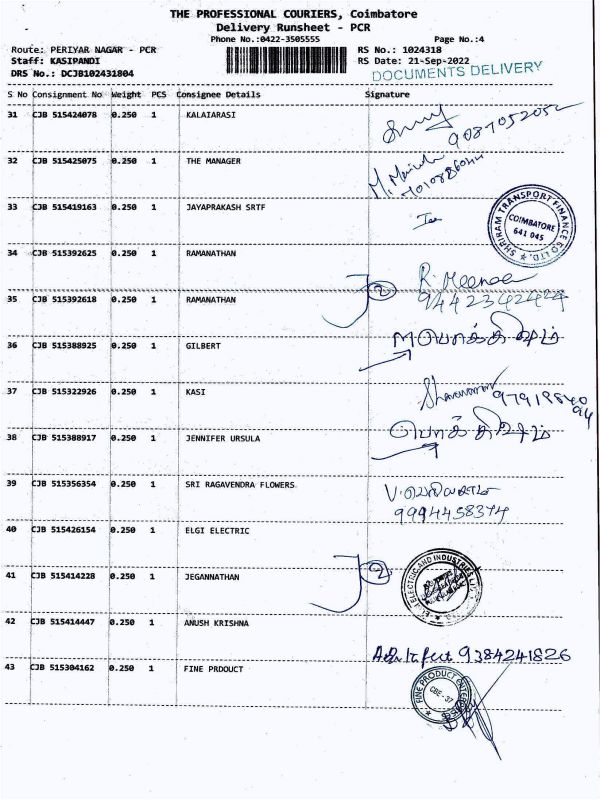 THE PROFESSIONAL COURIERS, Coimbatore
Delivery Runsheet - PCR
Phone No.:0422-3505555 Page No.:4
Route: PERIYAR NAGAR - PCR RS No.: 1024318
Staff: KASIPANDI RS Date: 21-Sep-2022
DRS No.: DCJB102431804 DOCUMENTS DELIVERY
S No Consignment No Weight PCS Consignee Details Signature
31 CJB 515424078 0.250 1 KALAIARASI
9087052052
32 CJB 515425075 0.250 1 THE MANAGER
33 CJB 515419163 0.250 1 JAYAPRAKASH SRTF
SHRIRAM TRANSPORT FINANCE CO LTD.
COIMBATORE
641 045
34 CJB 515392625 0.250 1 RAMANATHAN
R. Meena
2
9442342424
35 CJB 515392618 0.250 1 RAMANATHAN
36 CJB 515388925 0.250 1 GILBERT
37 CJB 515322926 0.250 1 KASI
38 CJB 515388917 0.250 1 JENNIFER URSULA
39 CJB 515356354 0.250 1 SRI RAGAVENDRA FLOWERS
9994458374
40 CJB 515426154 0.250 1 ELGI ELECTRIC
ELGI ELECTRIC AND INDUSTRIES LTD
2
41 CJB 515414228 0.250 1 JEGANNATHAN
42 CJB 515414447 0.250 1 ANUSH KRISHNA
9384241826
43 CJB 515304162 0.250 1 FINE PRDOUCT
FINE PRODUCT
CBE-37